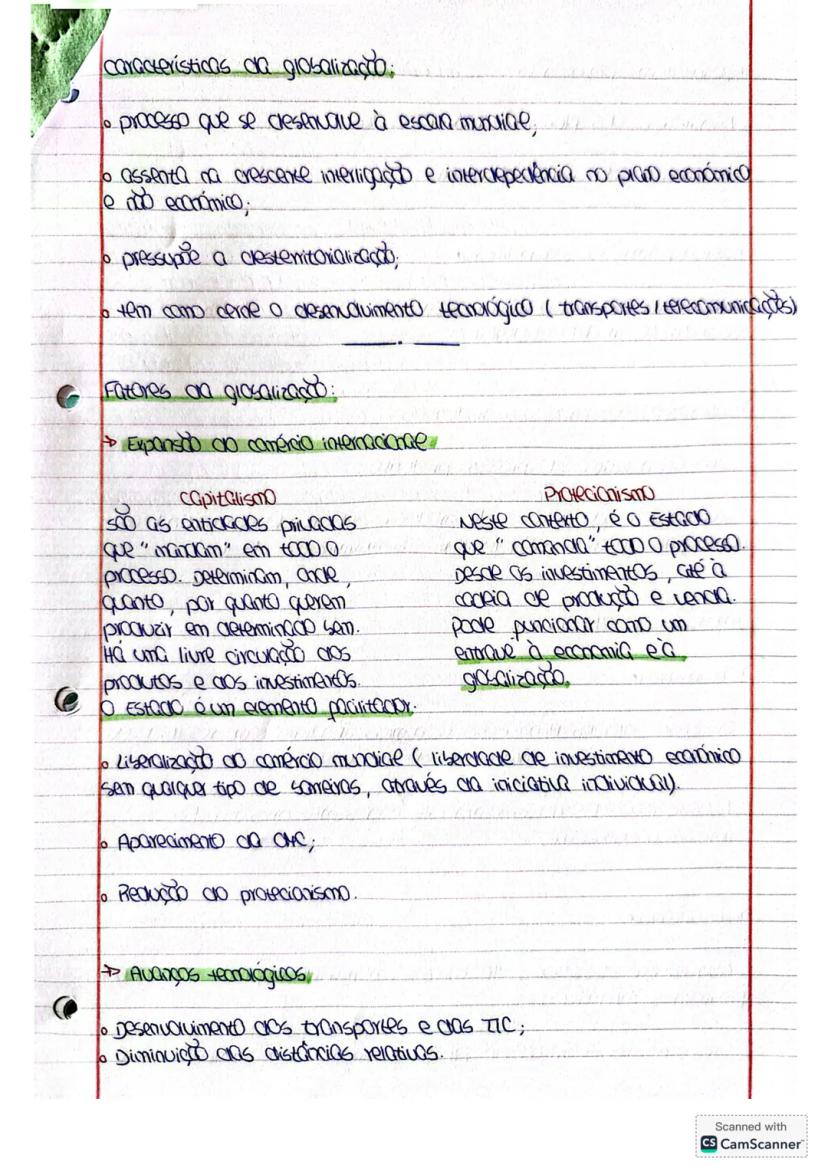 Características da globalização:
• processo que se desenvolve à escala mundial;
• assenta na crescente interligação e interdepedência no plano económico
e não económico;
• pressupõe a desterritorialização;
• têm como cerne o desenvolvimento tecnológico (transportes/telecomunicações)
Fatores da globalização:
→ Expansão do comércio internacional
Capitalismo
são as entidades privadas
que "mandam" em todo o
processo. Determinam, onde,
quanto, por quanto querem
produzir em determinado bem.
Há uma livre circulação dos
produtos e dos investimentos.
O Estado é um elemento facilitador.
Protecionismo
Neste contexto, é o Estado
que "comanda" todo o processo.
Desde os investimentos, até à
cadeia de produção e venda.
Pode funcionar como um
entrave à economia e à
globalização.
• Liberalização do comércio mundial (liberdade de investimento económico
sem qualquer tipo de barreiras, através da iniciativa individual).
• Aparecimento da OMC;
• Redução do protecionismo.
→ Avanços tecnológicos
• Desenvolvimento dos transportes e das TIC;
• Diminuição das distâncias relativas.
Scanned with
CS CamScanner